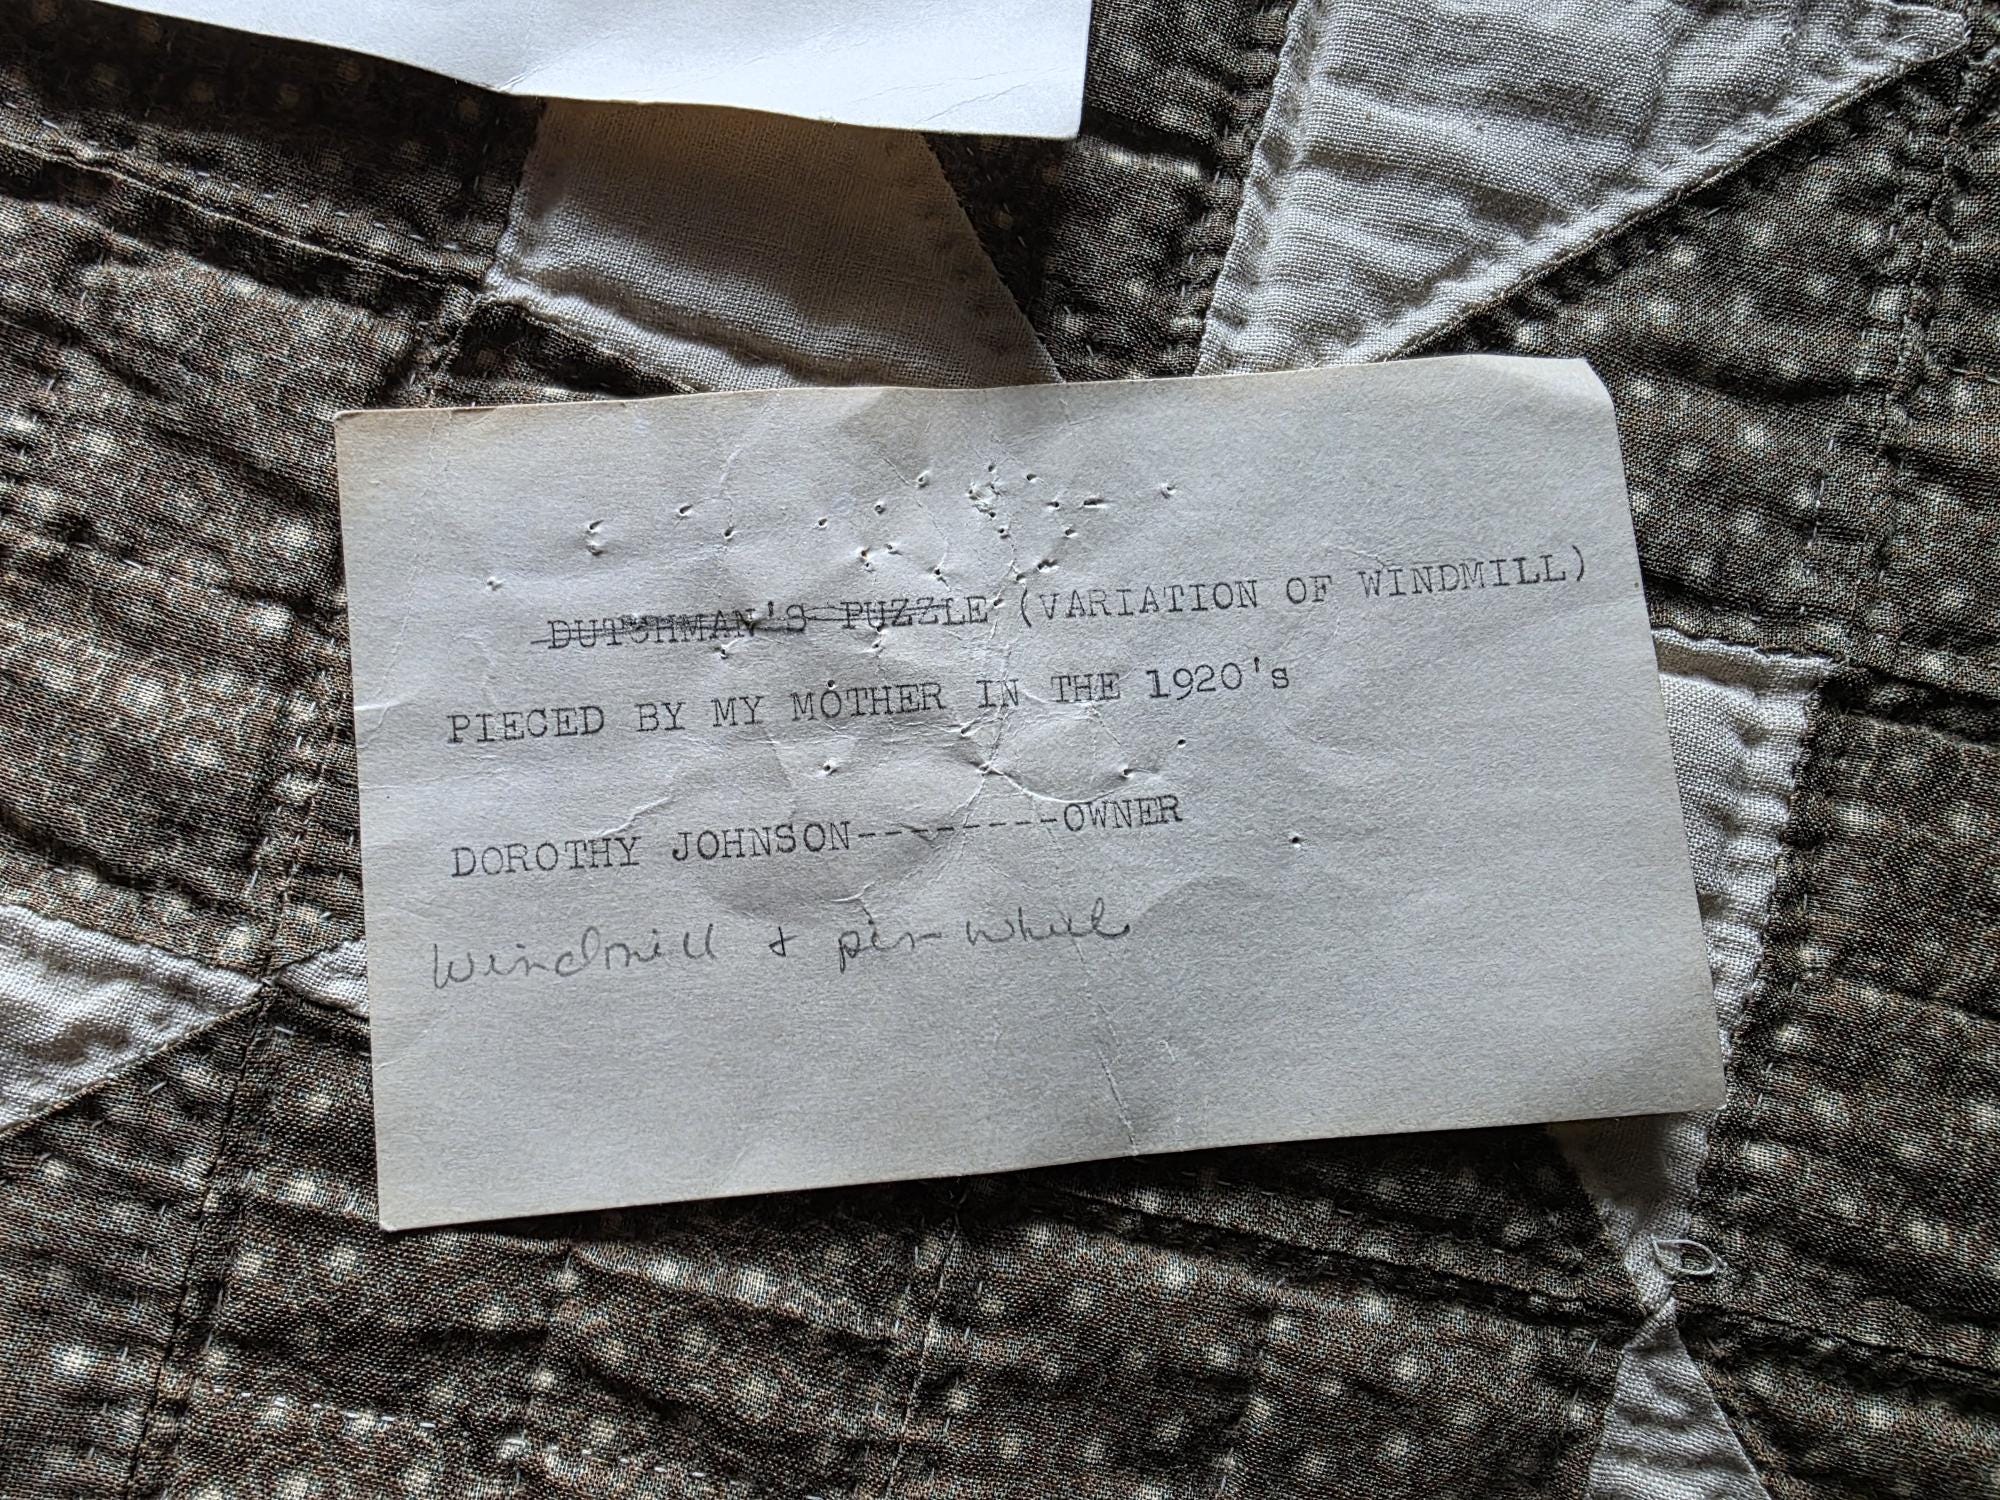 DUTCHMAN'S PUZZLE (VARIATION OF WINDMILL)
PIECED BY MY MOTHER IN THE 1920's
DOROTHY JOHNSON--------OWNER
Windmill + pin-wheel